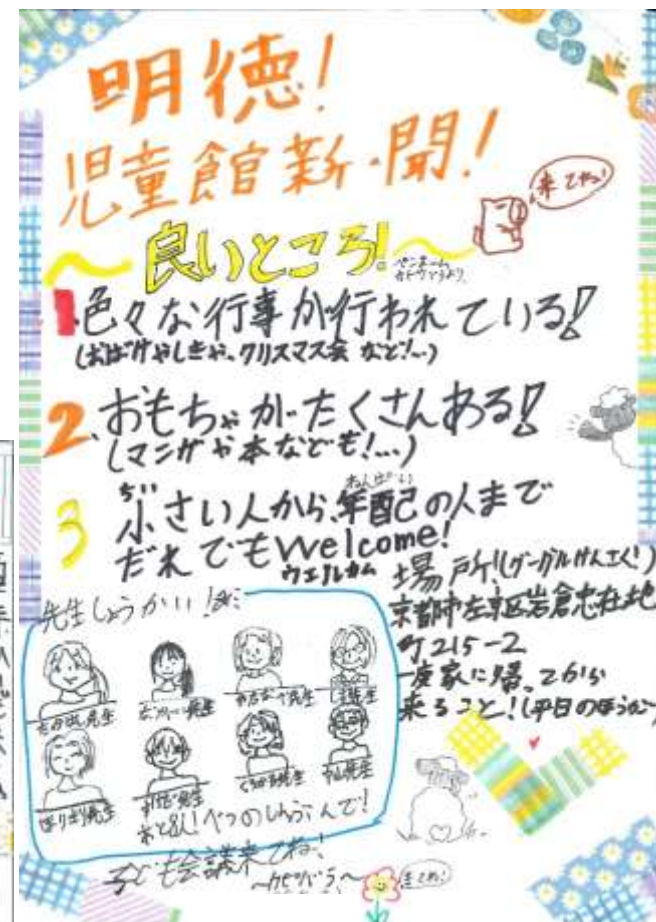 明徳!
児童館新聞!
来てね!
〜良いところ!〜
ペンネーム
1.色々な行事が行われている!
(おばけやしきや、クリスマス会など!…)
2.おもちゃがたくさんある!
(マンガや本なども!…)
3 小さい人から、年配の人まで
ちい
ねんぱい
だれでもWelcome!
ウェルカム
場所!(グーグルけんさく!)
京都市左京区岩倉忠在地
町215-2
一度家に帰ってから
来ること!(平日のほうかご)
先生しょうかい!
先生
先生
先生
先生
先生
先生
先生
先生
あと8人!べつのしんぶんで!
子ども会議来てね!
〜カピバラ〜
来てね!